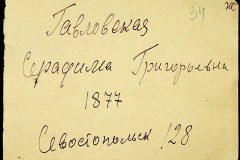 34
Павловская
Серафима Григорьевна
1877
Севостопольск 128